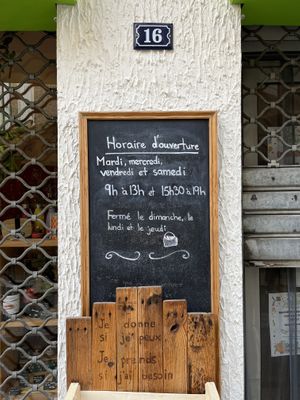 16
Horaire d'ouverture
Mardi, mercredi,
vendredi et samedi
9h à 13h et 15h30 à 19h
Fermé le dimanche, le
lundi et le jeudi
Je donne
si je peux
Je prends
si j'ai besoin